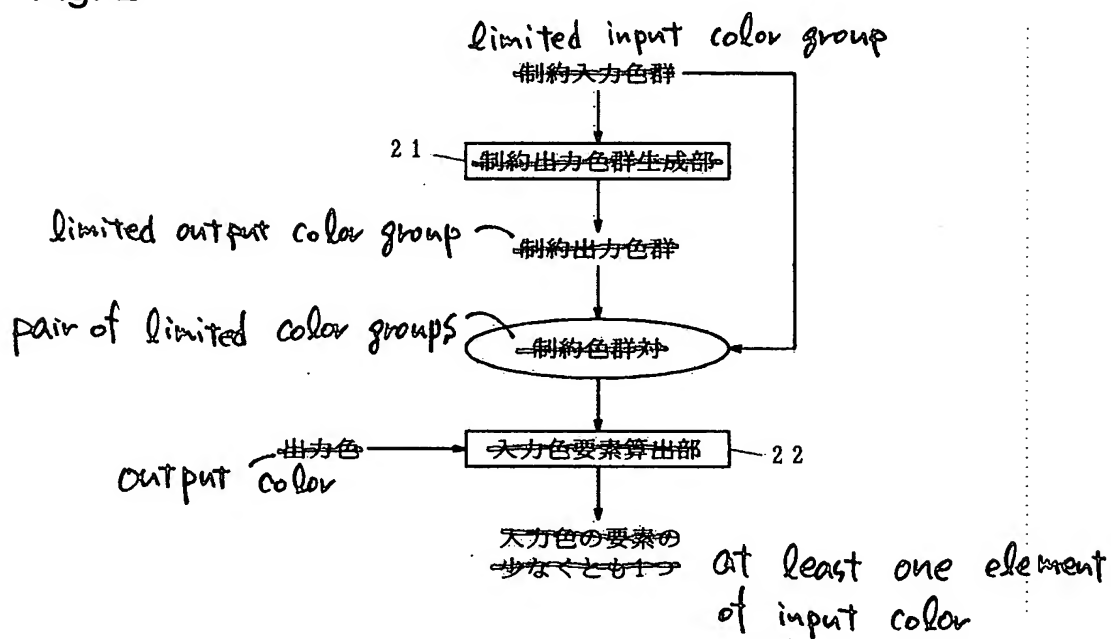 limited input color group
制約入力色群
21
制約出力色群生成部
limited output color group
制約出力色群
pair of limited color groups
制約色群対
出力色
入力色要素算出部
22
output color
入力色の要素の
少なくとも1つ
at least one element
of input color